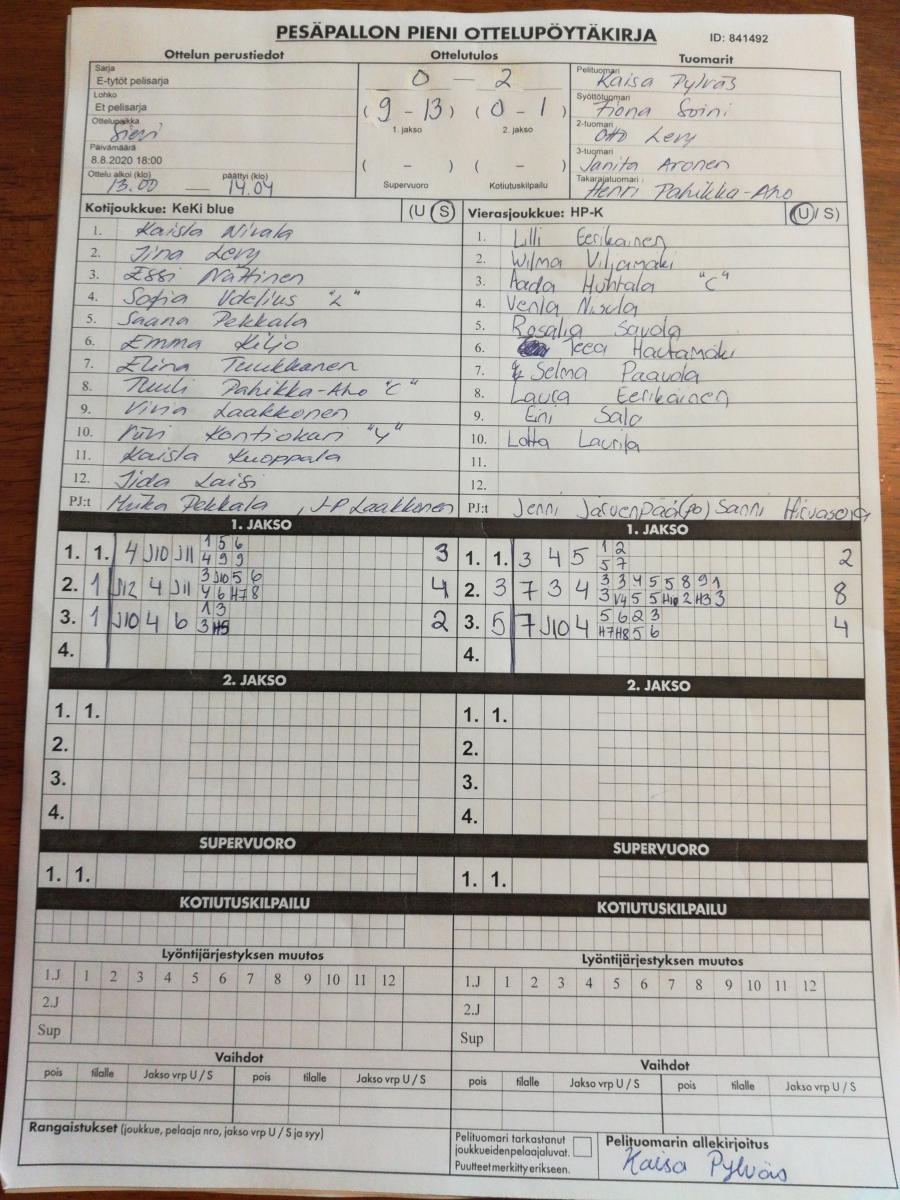 PESÄPALLON PIENI OTTELUPÖYTÄKIRJA ID: 841492
Ottelun perustiedot Ottelutulos Tuomarit
Sarja
E-tytöt pelisarja
Lohko
Et pelisarja
Ottelupaikka
Sievi
Päivämäärä
8.8.2020 18:00
Ottelu alkoi (klo) päättyi (klo)
13.00 — 14.04
0 — 2
(9 - 13) (0 - 1)
1. jakso 2. jakso
( - ) ( - )
Supervuoro Kotiutuskilpailu
Pelituomari Kaisa Pylväs
Syöttötuomari Fiona Soini
2-tuomari Otto Levy
3-tuomari Janita Aronen
Takarajatuomari Henri Pahikka-Aho
Kotijoukkue: KeKi blue (U S)
1. Kaisla Nivala
2. Iina Levy
3. Essi Nättinen
4. Sofia Udelius "L"
5. Saana Pekkala
6. Emma Kiljo
7. Elina Tuukkanen
8. Tuuli Pahikka-Aho "C"
9. Viria Laakkonen
10. Kontiokari "y"
11. Kaisla Kuoppala
12. Iida Laisi
PJ:t Miika Pekkala, J-P Laakkonen
Vierasjoukkue: HP-K (U/ S)
1. Lilli Eerikainen
2. Wilma Viljamäki
3. Aada Huhtala "C"
4. Venla Nisula
5. Rosalia Savola
6. Teea Hautamäki
7. Selma Paavola
8. Laura Eerikäinen
9. Eini Salo
10. Lotta Laurila
11.
12.
PJ:t Jenni Järvenpää(po) Sanni Hirvasoja
1. JAKSO
1. 1. 4 J10 J11 1 5 6 3
4 9 9
2. 1 J12 4 J11 3 J10 5 6 4
4 6 H7 8
3. 1 J10 4 6 1 3 2
3 H5
4.
1. JAKSO
1. 1. 3 4 5 1 2 2
5 7
2. 3 7 3 4 3 3 4 5 5 8 9 1 8
3 V4 5 5 H10 2 H3 3
3. 5 7 J10 4 5 6 2 3 4
H7 H8 5 6
4.
2. JAKSO
1. 1.
2.
3.
4.
2. JAKSO
1. 1.
2.
3.
4.
SUPERVUORO
1. 1.
SUPERVUORO
1. 1.
KOTIUTUSKILPAILU
KOTIUTUSKILPAILU
Lyöntijärjestyksen muutos
1.J 1 2 3 4 5 6 7 8 9 10 11 12
2.J
Sup
Lyöntijärjestyksen muutos
1.J 1 2 3 4 5 6 7 8 9 10 11 12
2.J
Sup
Vaihdot
pois tilalle Jakso vrp U / S pois tilalle Jakso vrp U / S
Vaihdot
pois tilalle Jakso vrp U / S pois tilalle Jakso vrp U / S
Rangaistukset (joukkue, pelaaja nro, jakso vrp U / S ja syy)
Pelituomari tarkastanut
joukkueidenpelaajaluvat.
Puutteet merkitty erikseen.
Pelituomarin allekirjoitus
Kaisa Pylväs